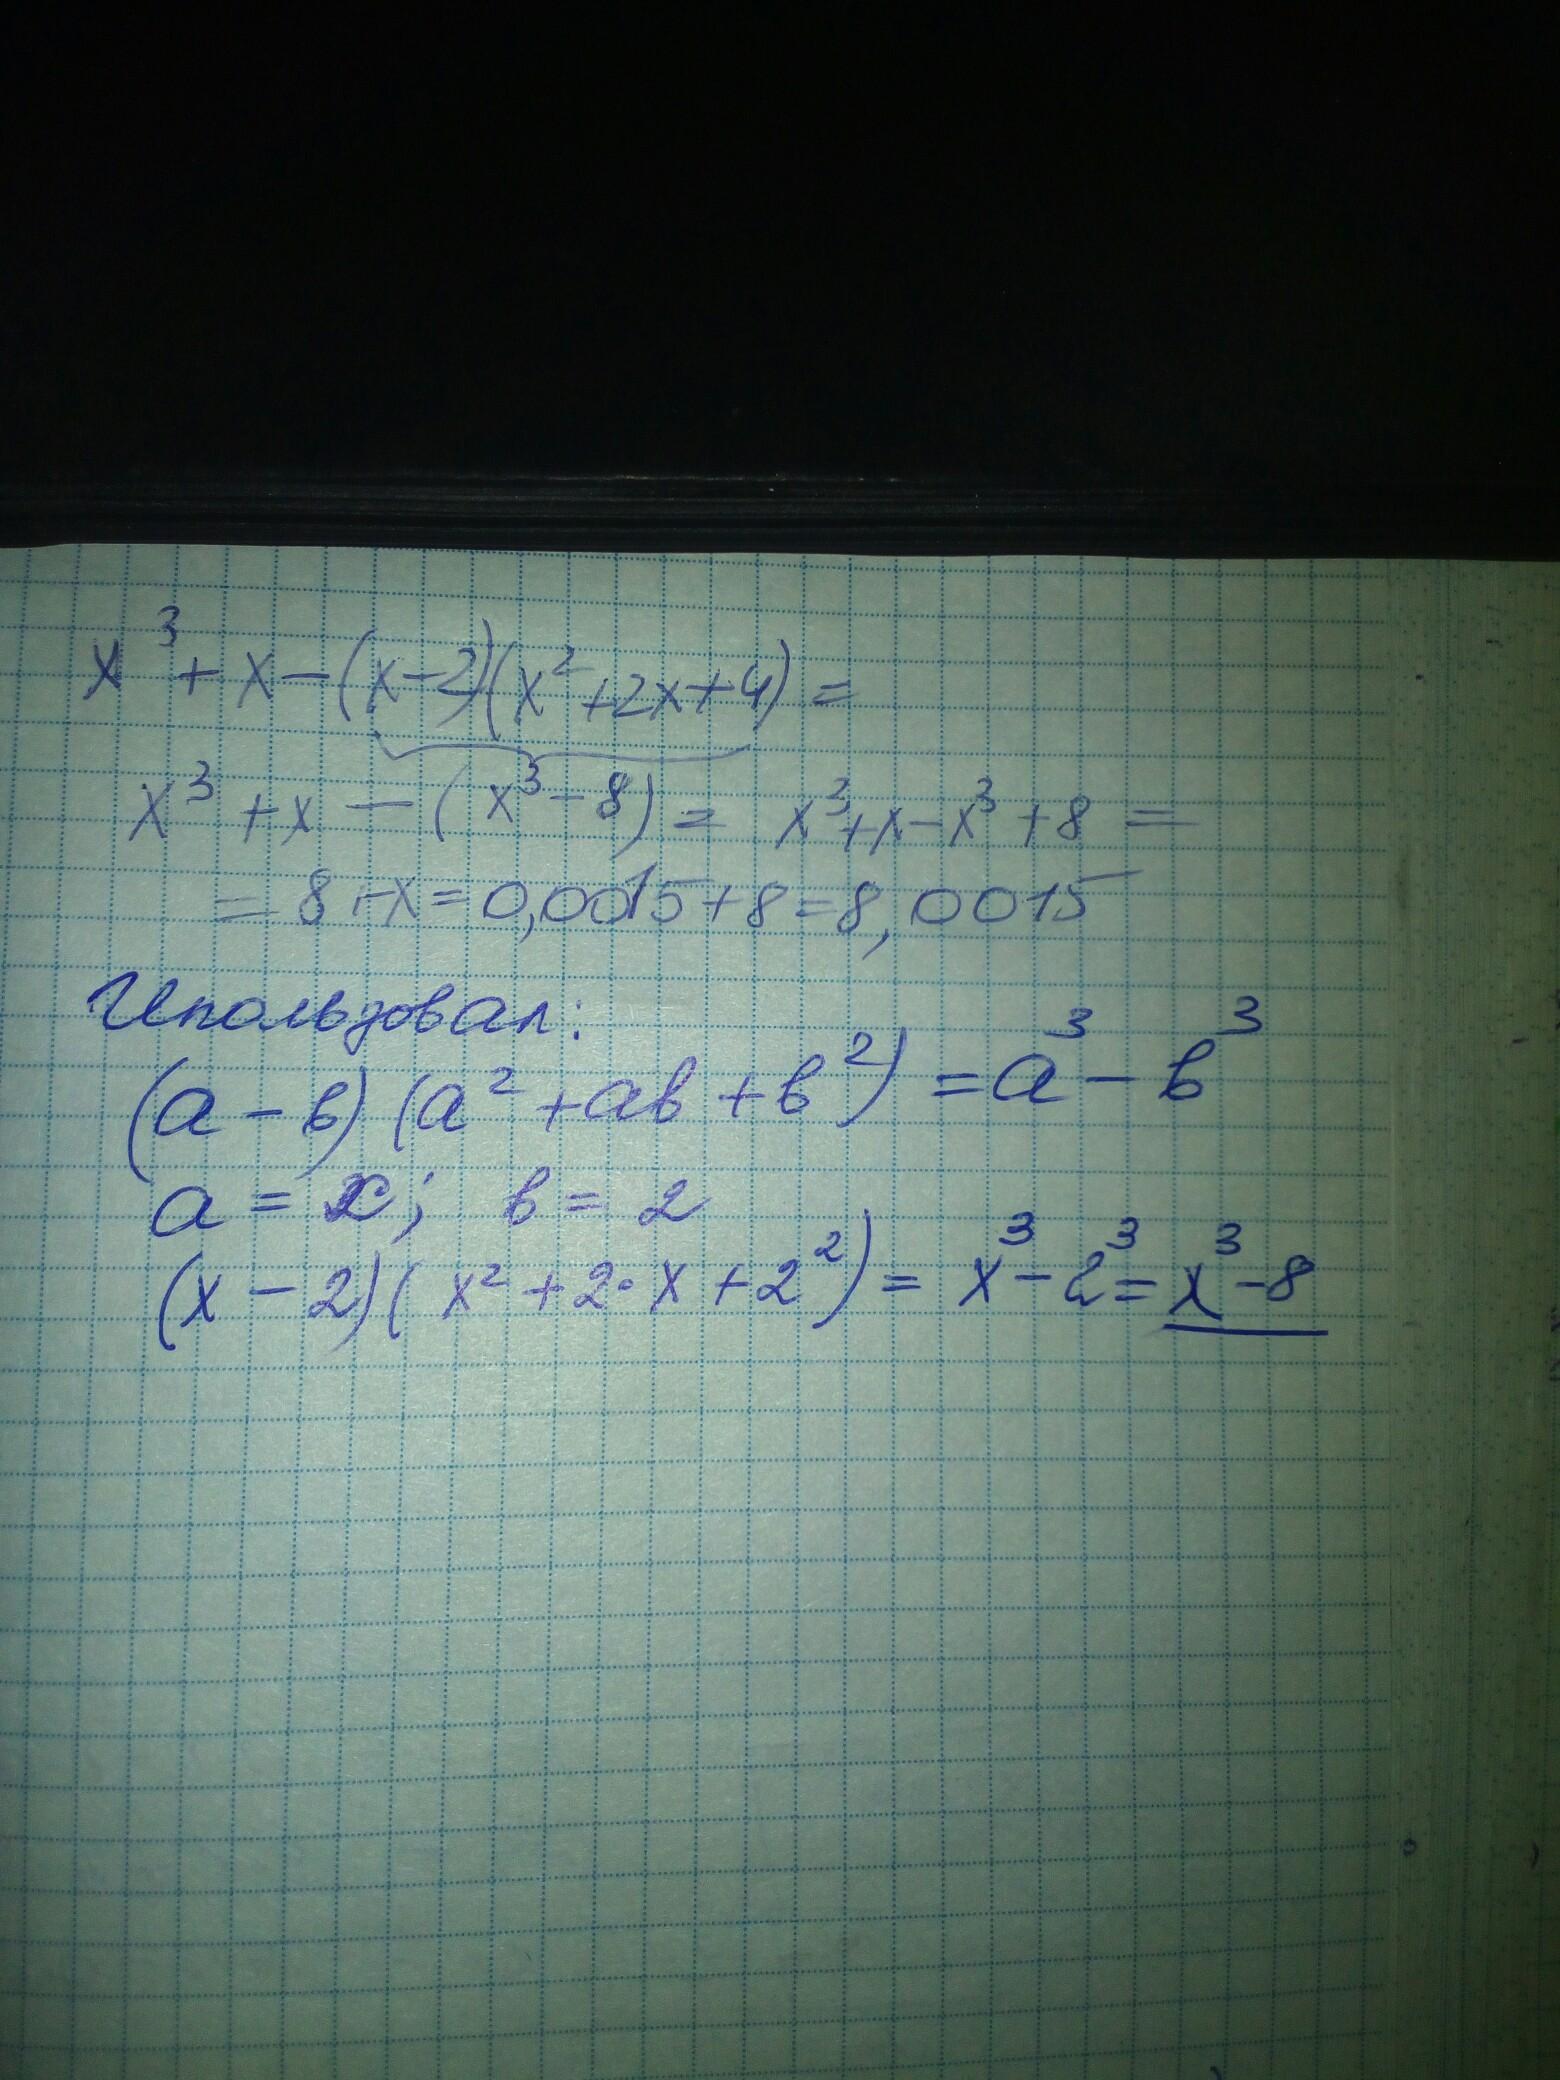 x³ + x - (x-2)(x²+2x+4) =
x³ + x - (x³-8) = x³+x-x³+8 =
= 8+x = 0,0015+8 = 8,0015
Ипользовал:
(a - в)(a² + aв + в²) = a³ - в³
a = x; в = 2
(x - 2)(x² + 2·x + 2²) = x³ - 2³ = x³-8